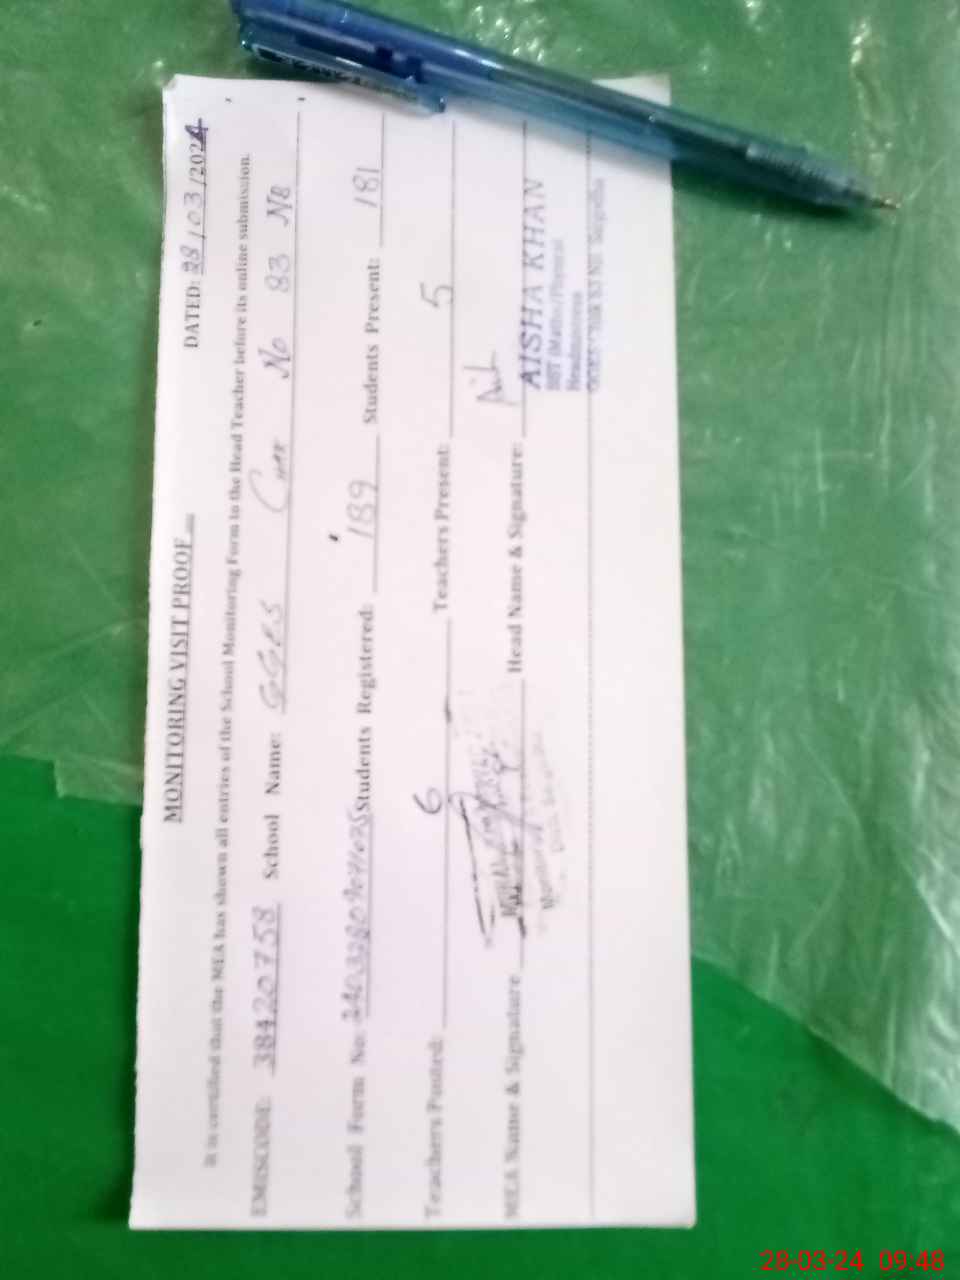 MONITORING VISIT PROOF
DATED: 28/03/2024
It is certified that the MEA has shown all entries of the School Monitoring Form to the Head Teacher before its online submission.
EMISCODE: 38420758 School Name: GGES Chak No 83 NB
School Form No: Students Registered: 189 Students Present: 181
Teachers Posted: 6 Teachers Present: 5
MEA Name & Signature Head Name & Signature:
AISHA KHAN
SST (Maths/Physics)
Headmistress
28-03-24 09:48